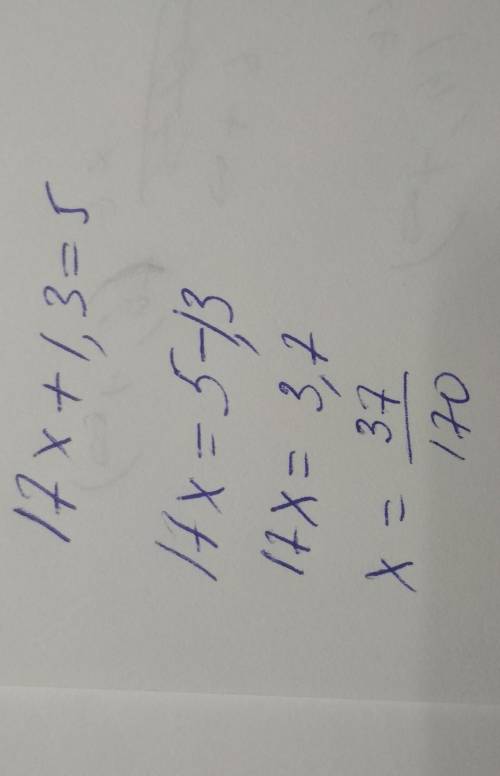 17x+1,3=5
17x=5-1,3
17x=3,7
x=37/170